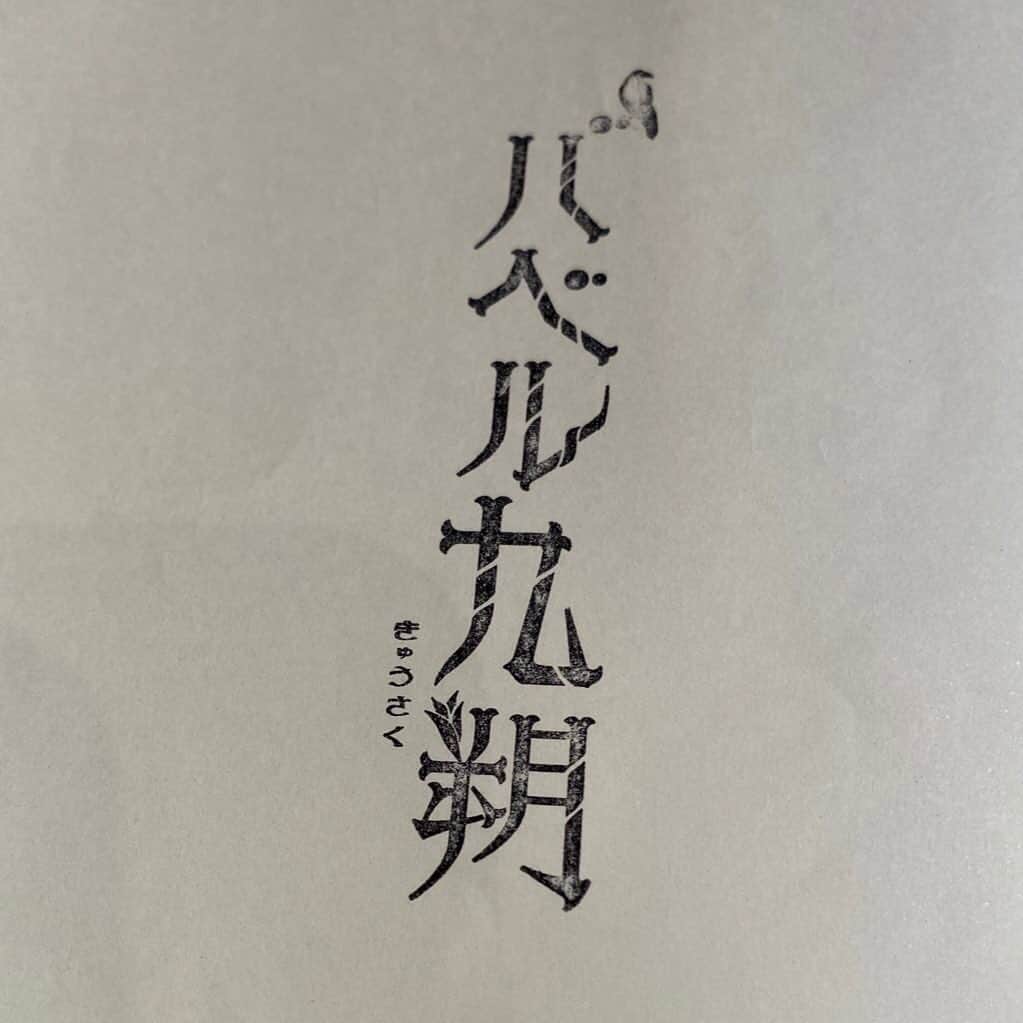 バベル九朔
きゅうさく